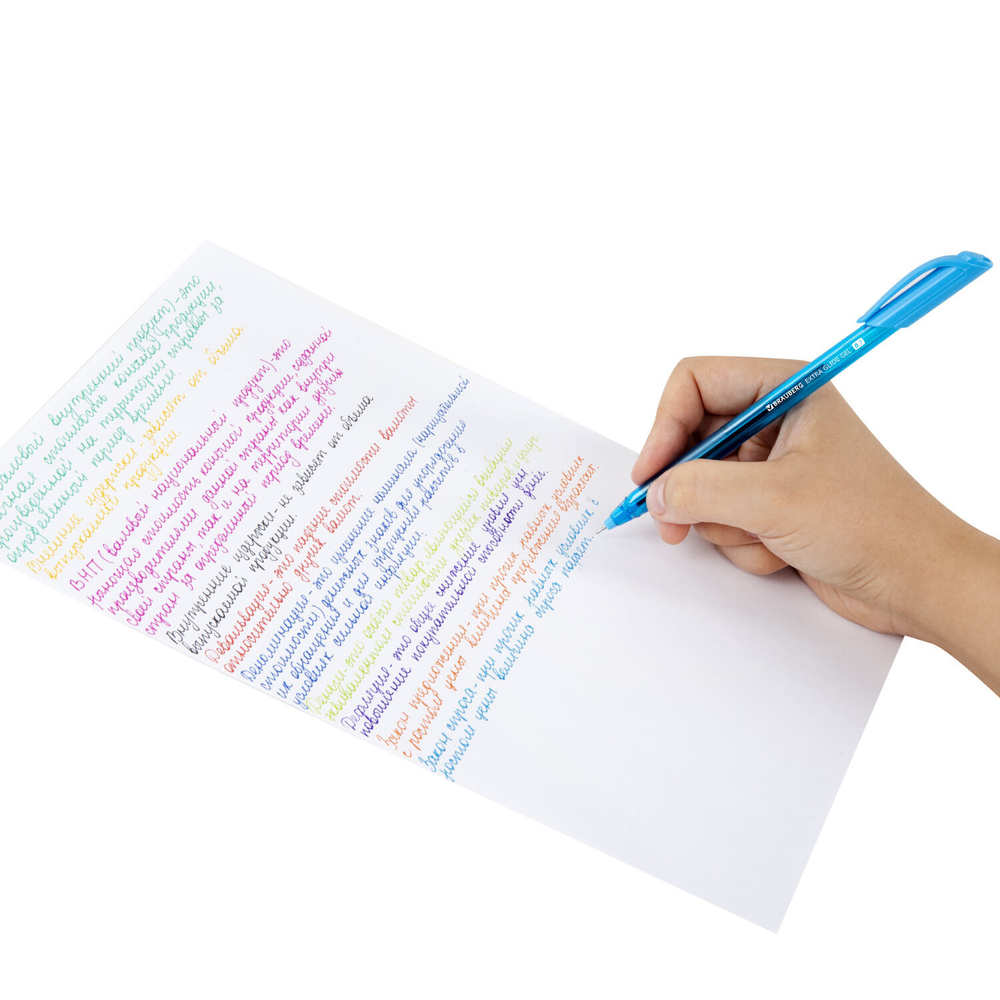 валовой внутренний продукт)-это
рыночная стоимость конечной продукции,
произведенной на территории страны за
определенный период времени.
Внешние издержки-зависят от объема
выпускаемой продукции
ВНП (валовый национальный продукт)-это
рыночная стоимость конечной продукции, созданной
производителями данной страны как внутри
своей страны, так и на территории других
стран за определенный период времени.
Внутренние издержки-не зависит от объема
выпускаемой продукции.
Девальвация-это падение стоимости валюты
относительно других валют.
Деноминация-это изменение номинала (нарицательной
стоимости) денежных знаков для упорядочения
их обращения и для упрощения расчетов в
условиях сильной инфляции.
Деньги-это особый товар, являющийся всеобщим
эквивалентом стоимости других товаров и услуг
Дефляция-это общее снижение уровня цен
повышение покупательной способности денег.
Закон предложения-при прочих равных условиях
с ростом цены величина предложения возрастает.
Закон спроса-при прочих равных условиях с
ростом цены величина спроса падает.
BRAUBERG EXTRA GLIDE GEL 0.7